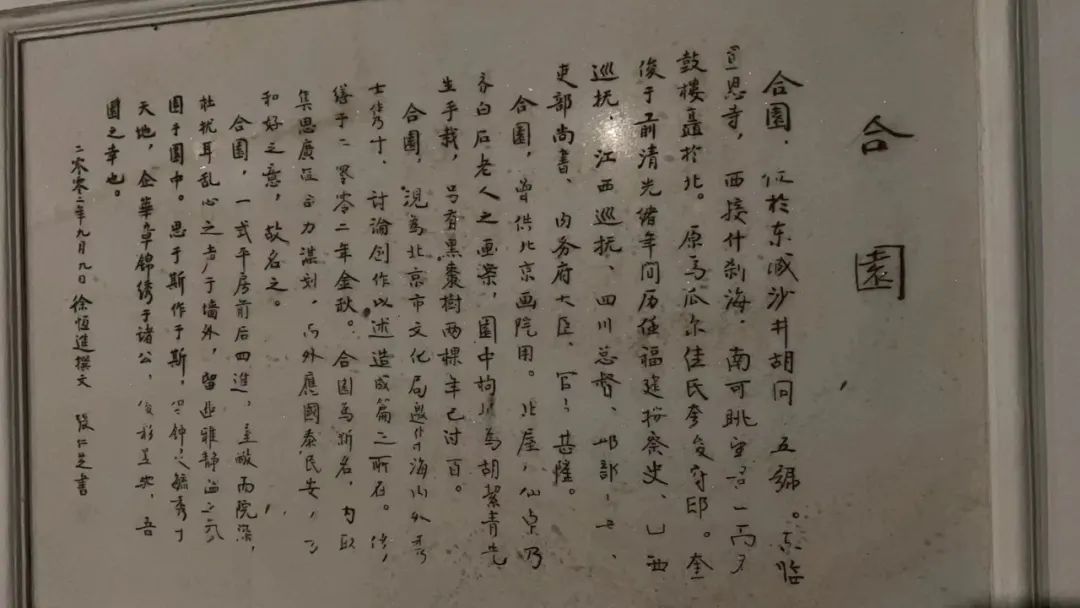 合園
合園，位於东城沙井胡同五號。东临
宣恩寺，西接什刹海，南可眺
鼓樓矗於北。原為瓜尔佳氏奎俊守邸。奎
俊于前清光绪年间历任福建按察史、山西
巡抚、江西巡抚、四川总督、
吏部尚書、内务府大臣、官甚隆。
合園，曾供北京画院用。北屋，仙桌乃
齐白石老人之画案，園中枸为胡絜青先
生手栽，另有黑棗樹两棵年已过百。
合園，现為北京市文化局邀海内外
士，讨論創作以述造成篇之所在。
缮于二零零二年金秋。合園為新名，内取
集思廣益合力谋划，而外應國泰民安，
和好之意，故名之。
合園，一式平房前后四進，而院深，
杜扰耳乱心之者于墙外，留幽雅静谧之
園于園中。思于斯作于斯，钟之毓秀
天地，企華章锦绣于诸公，吾
園之幸也。
二零零二年九月九日 徐恒進撰文 张仁芝書